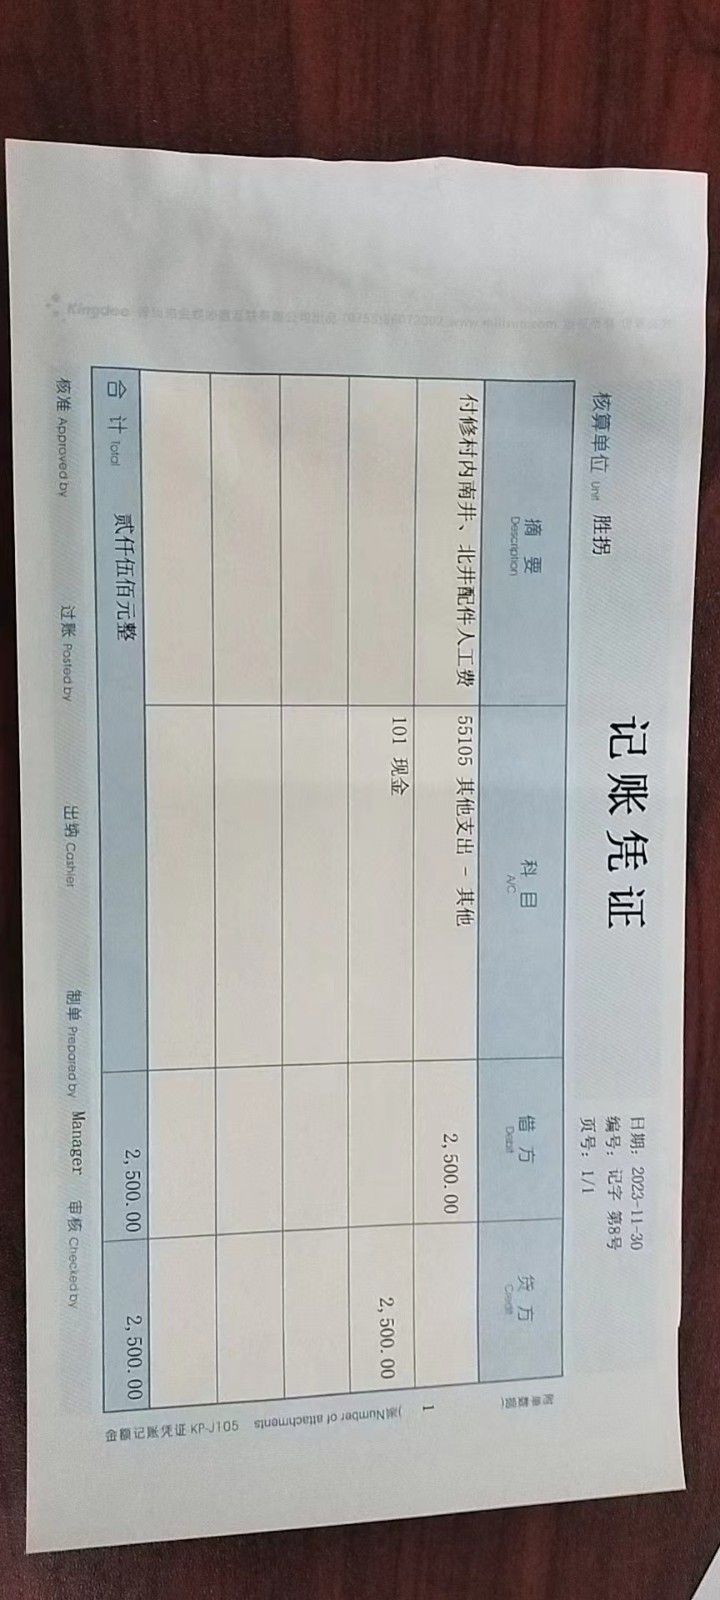 记账凭证
日期：2023-11-30
编号：记字 第8号
页号：1/1
核算单位 Unit 胜拐
摘要 Description 科目 A/C 借方 Debit 贷方 Credit
付修村内南井、北井配件人工费 55105 其他支出 - 其他 2,500.00
101 现金 2,500.00
合计 Total 贰仟伍佰元整 2,500.00 2,500.00
核准 Approved by 过账 Posted by 出纳 Cashier 制单 Prepared by Manager 审核 Checked by
附单数
1
Number of attachments
金额记账凭证 KP-J105
Kingdee